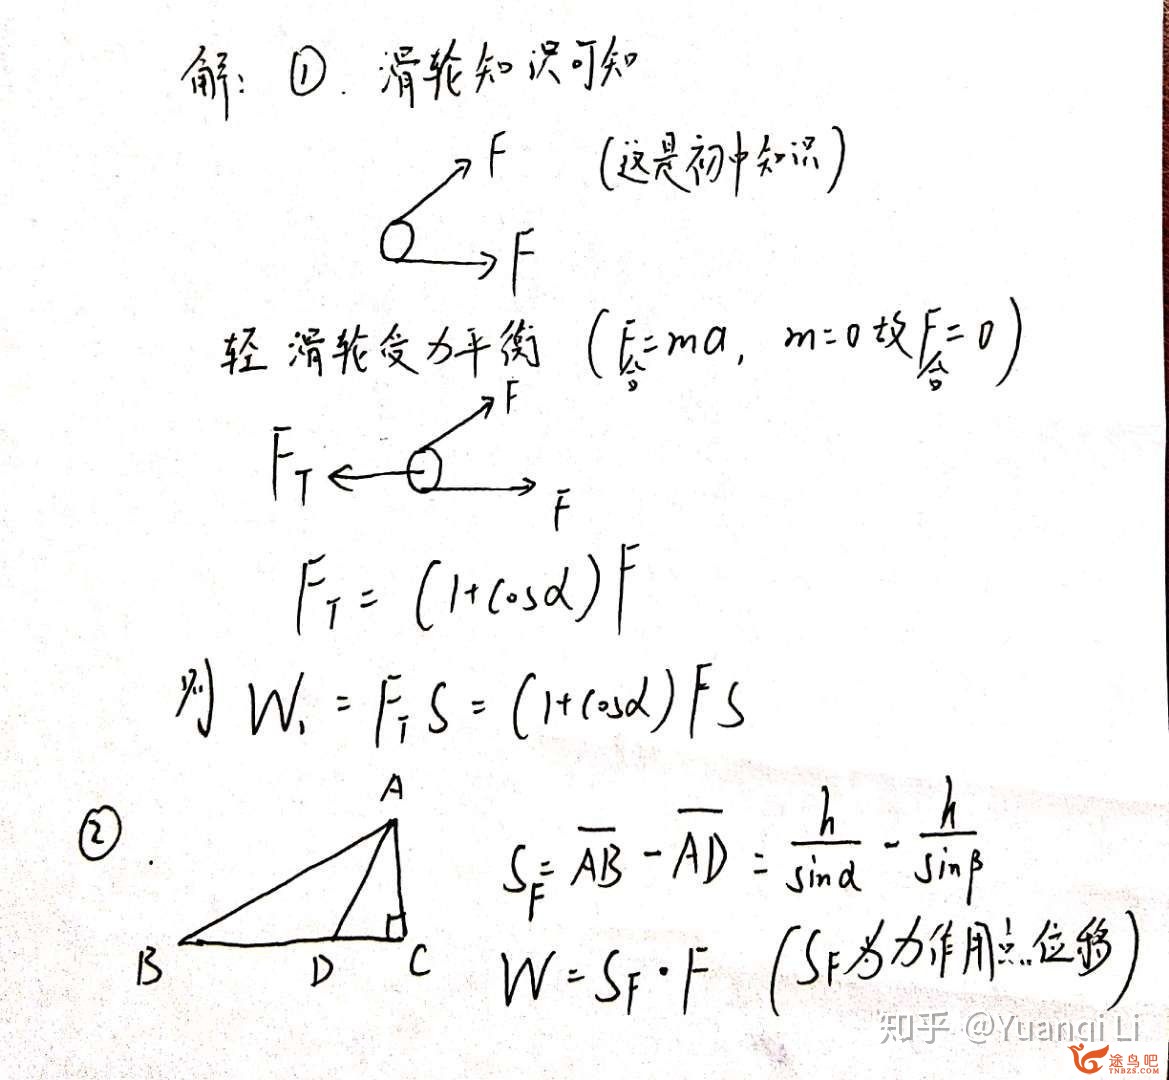 解: ①. 滑轮知识可知
F
(这是初中知识)
F
轻滑轮受力平衡 (F合=ma, m=0故F合=0)
F
F_T
F
F_T = (1+cosα)F
则 W₁ = F_T S = (1+cosα) F S
②.
A
B
D
C
S_F = \overline{AB} - \overline{AD} = \frac{h}{sinα} - \frac{h}{sinβ}
W = S_F · F (S_F为力作用点位移)
知乎 @Yuanqi Li
途鸟吧
TNBZS.COM